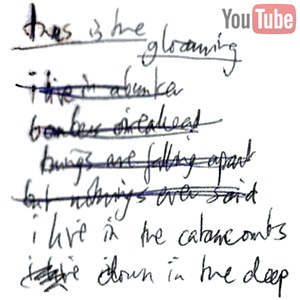 YouTube
this is the
gloaming
i live in a bunker
bombers overhead
things are falling apart
but nothings ever said
i live in the catacombs
down in the deep